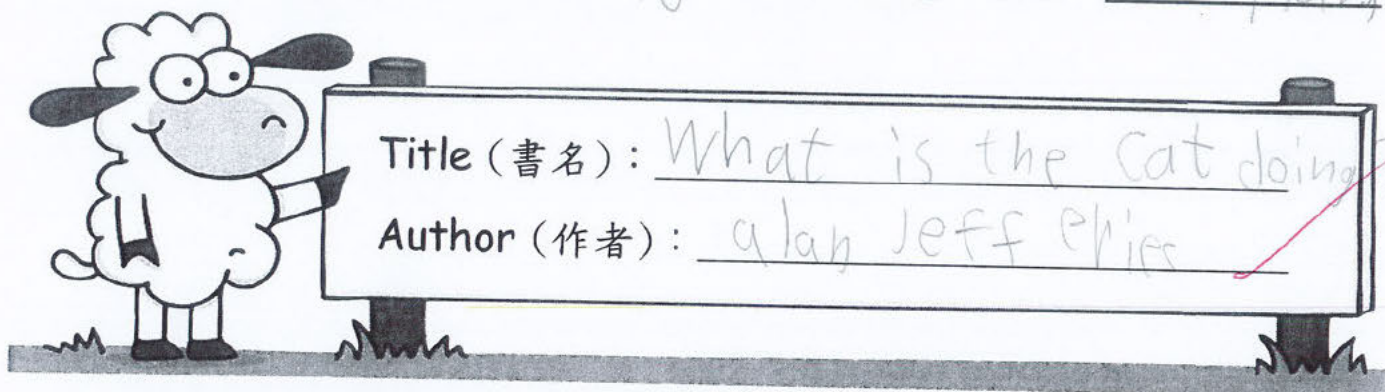 Title (書名): What is the Cat doing?
Author (作者): alan Jeff eries